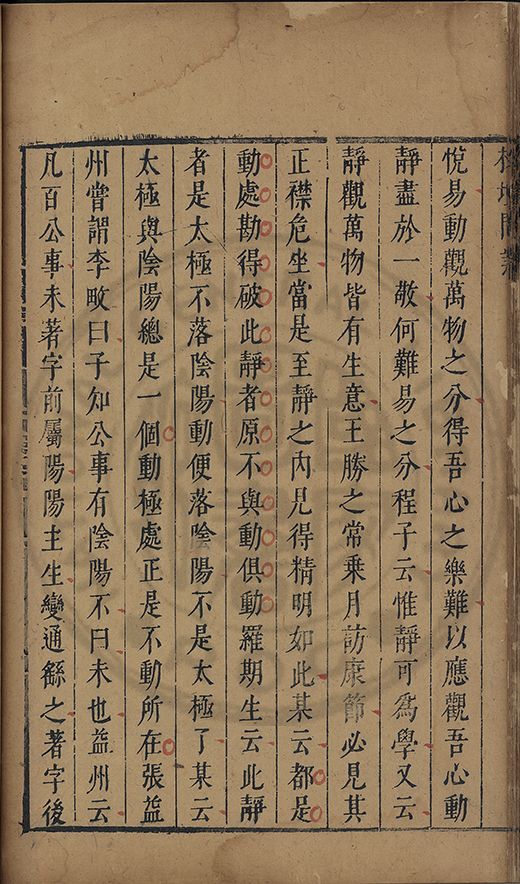 悅易動觀萬物之分得吾心之樂難以應觀吾心動
靜盡於一敬何難易之分程子云惟靜可爲學又云
靜觀萬物皆有生意王勝之常乗月訪康節必見其
正襟危坐當是至靜之内見得精明如此某云都是
動處勘得破此靜者原不與動俱動羅期生云此靜
者是太極不落陰陽動便落陰陽不是太極了某云
太極與陰陽總是一個動極處正是不動所在張益
州嘗謂李畋曰子知公事有陰陽不曰未也益州云
凡百公事未著字前屬陽陽主生變通繇之著字後